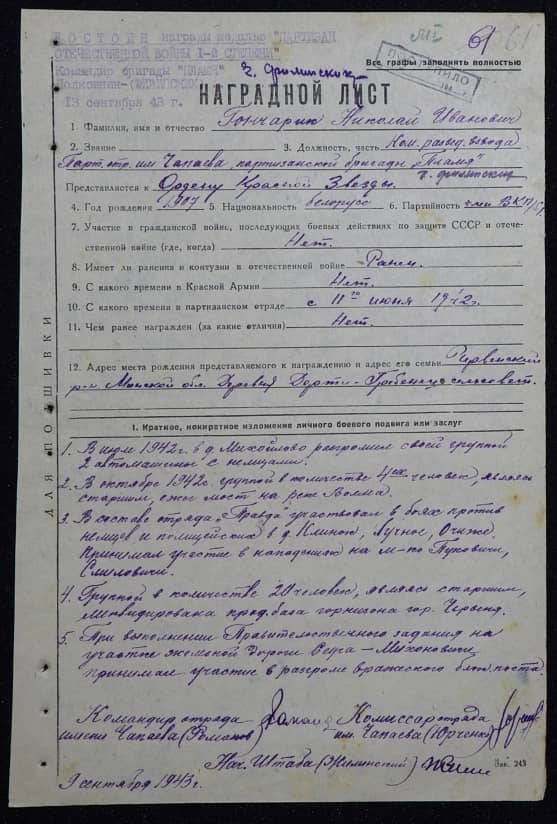 ДОСТОИН награды медалью "ПАРТИЗАН
ОТЕЧЕСТВЕННОЙ ВОЙНЫ I-й СТЕПЕНИ"
Командир бригады "ПЛАМЯ"
Полковник
13 сентября 43 г.
61
Все графы заполнять полностью
НАГРАДНОЙ ЛИСТ
1. Фамилия, имя и отчество Гончарик Николай Иванович
2. Звание 3. Должность, часть Ком. развед. взвода
Парт. отр. им Чапаева, партизанской бригады "Пламя"
Представляется к Ордену Красной Звезды.
4. Год рождения 1907 5. Национальность белорусс 6. Партийность член ВКП/б/
7. Участие в гражданской войне, последующих боевых действиях по защите СССР и отече-
ственной войне (где, когда) Нет.
8. Имеет ли ранения и контузии в отечественной войне Ранен.
9. С какого времени в Красной Армии Нет.
10. С какого времени в партизанском отряде с 11го июня 1942г.
11. Чем ранее награжден (за какие отличия) Нет.
12. Адрес места рождения представляемого к награждению и адрес его семьи
р-н Минской обл. Деревня сельсовет.
ДЛЯ ПОДШИВКИ
I. Краткое, конкретное изложение личного боевого подвига или заслуг
1. В июле 1942г. в д. Михайлово разгромил своей группой
2 автомашины с немцами.
2. В октябре 1942г. группой в количестве 4ех человек, являясь
старшим, сжег мост на реке Волма.
3. В составе отряда "Правда" участвовал в боях против
немцев и полицейских в д. Клинок,
Принимал участие в нападениях на м-ко Пуховичи,
Смиловичи.
4. Группой в количестве 20 человек, являясь старшим,
ликвидирована прод. база горнизона гор. Червень.
5. При выполнении Правительственного задания на
участке железной дороги Седча - Михановичи,
принимал участие в разгроме вражеского блокпоста.
Командир отряда Комиссар отряда
имени Чапаева (Романов) им. Чапаева (Юрченко)
Нач. Штаба (Жилинский)
Зак. 243
9 сентября 1943 г.